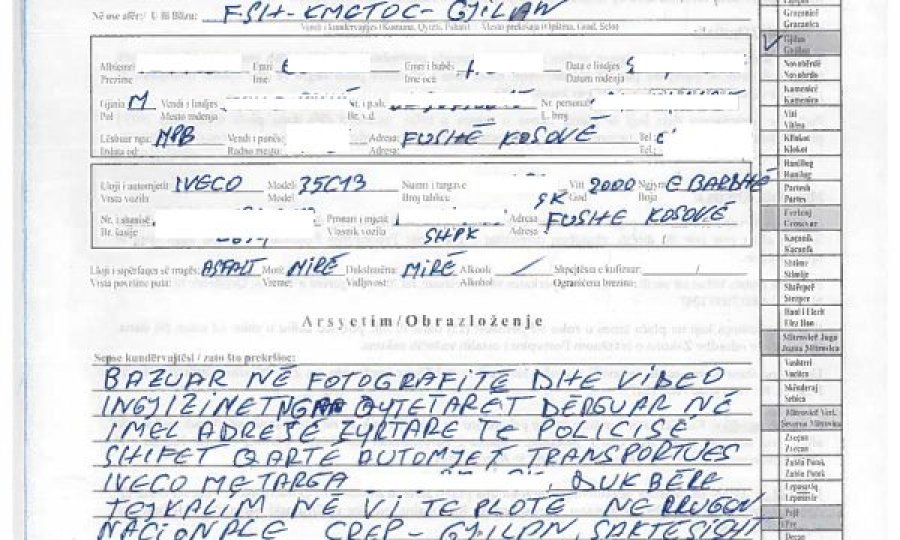 Në ose afër:/ U ili Blizu: FSH-KMETOC-GJILAN
Albiemri Emri Emri i babës Data e lindjes
Prezime Ime: Ime oca Datum rođenja
Gjinia M Vendi i lindjes Nr. i p.sh. Nr. personal
Pol Mesto rođenja Br. v.d. L. broj
Lëshuar nga: MPB Vendi i punës: Adresa: FUSHË KOSOVË Tel.:
Izdata od: Radno mesto: Adresa: Tel.:
Lloji i automjetit IVECO Model: 35C13 Numri i targave Viti 2000 Ngjyra E BARDHË
Vrsta vozila Model Broj tablice SK God Boja
Nr. i shasisë Pronari i mjetit Adresa FUSHE KOSOVË
Br. šasije Vlasnik vozila SHPK Adresa
Lloji i sipërfaqes së rrugës: ASFALT Moti: MIRË Dukshmëria: MIRË Alkool: / Shpejtësia e kufizuar: /
Vrsta površine puta: Vreme: Vidljivost: Alkohol: Ograničena brzina:
Arsyetim/Obrazloženje
Sepse kundërvajtësi / zato što prekršine:
BAZUAR NË FOTOGRAFITË DHE VIDEO
QYTETARËT DËRGUAR NË
IMEL ADRESË ZYRTARE TE POLICISË
SHIFET QARTË AUTOMJET TRANSPORTUES
IVECO ME TARGA DUK BËRË
TEJKALIM NË VI TE PLOTË NE RRUGEN
NACIONALE CREP-GJILAN, SAKTËSISHT
Gracanicë
Gracanica
Gjilan
Gnjilane
Novobërdë
Novo brdo
Kamenicë
Kamenica
Viti
Vitina
Kllokot
Klokot
Hani Elezit
Partesh
Parteš
Ferizaj
Uroševac
Kaçanik
Kačanik
Shtime
Štimlje
Shtërpcë
Štrpce
Mitrovicë Jugu
Južna Mitrovica
Vushtrri
Vučitrn
Skënderaj
Srbica
Mitrovicë Veri.
Severna Mitrovica
Zveçan
Zvečan
Zubin Potok
Zubin Potok
Leposaviq
Leposavić
Pejë
Peć
Deçan